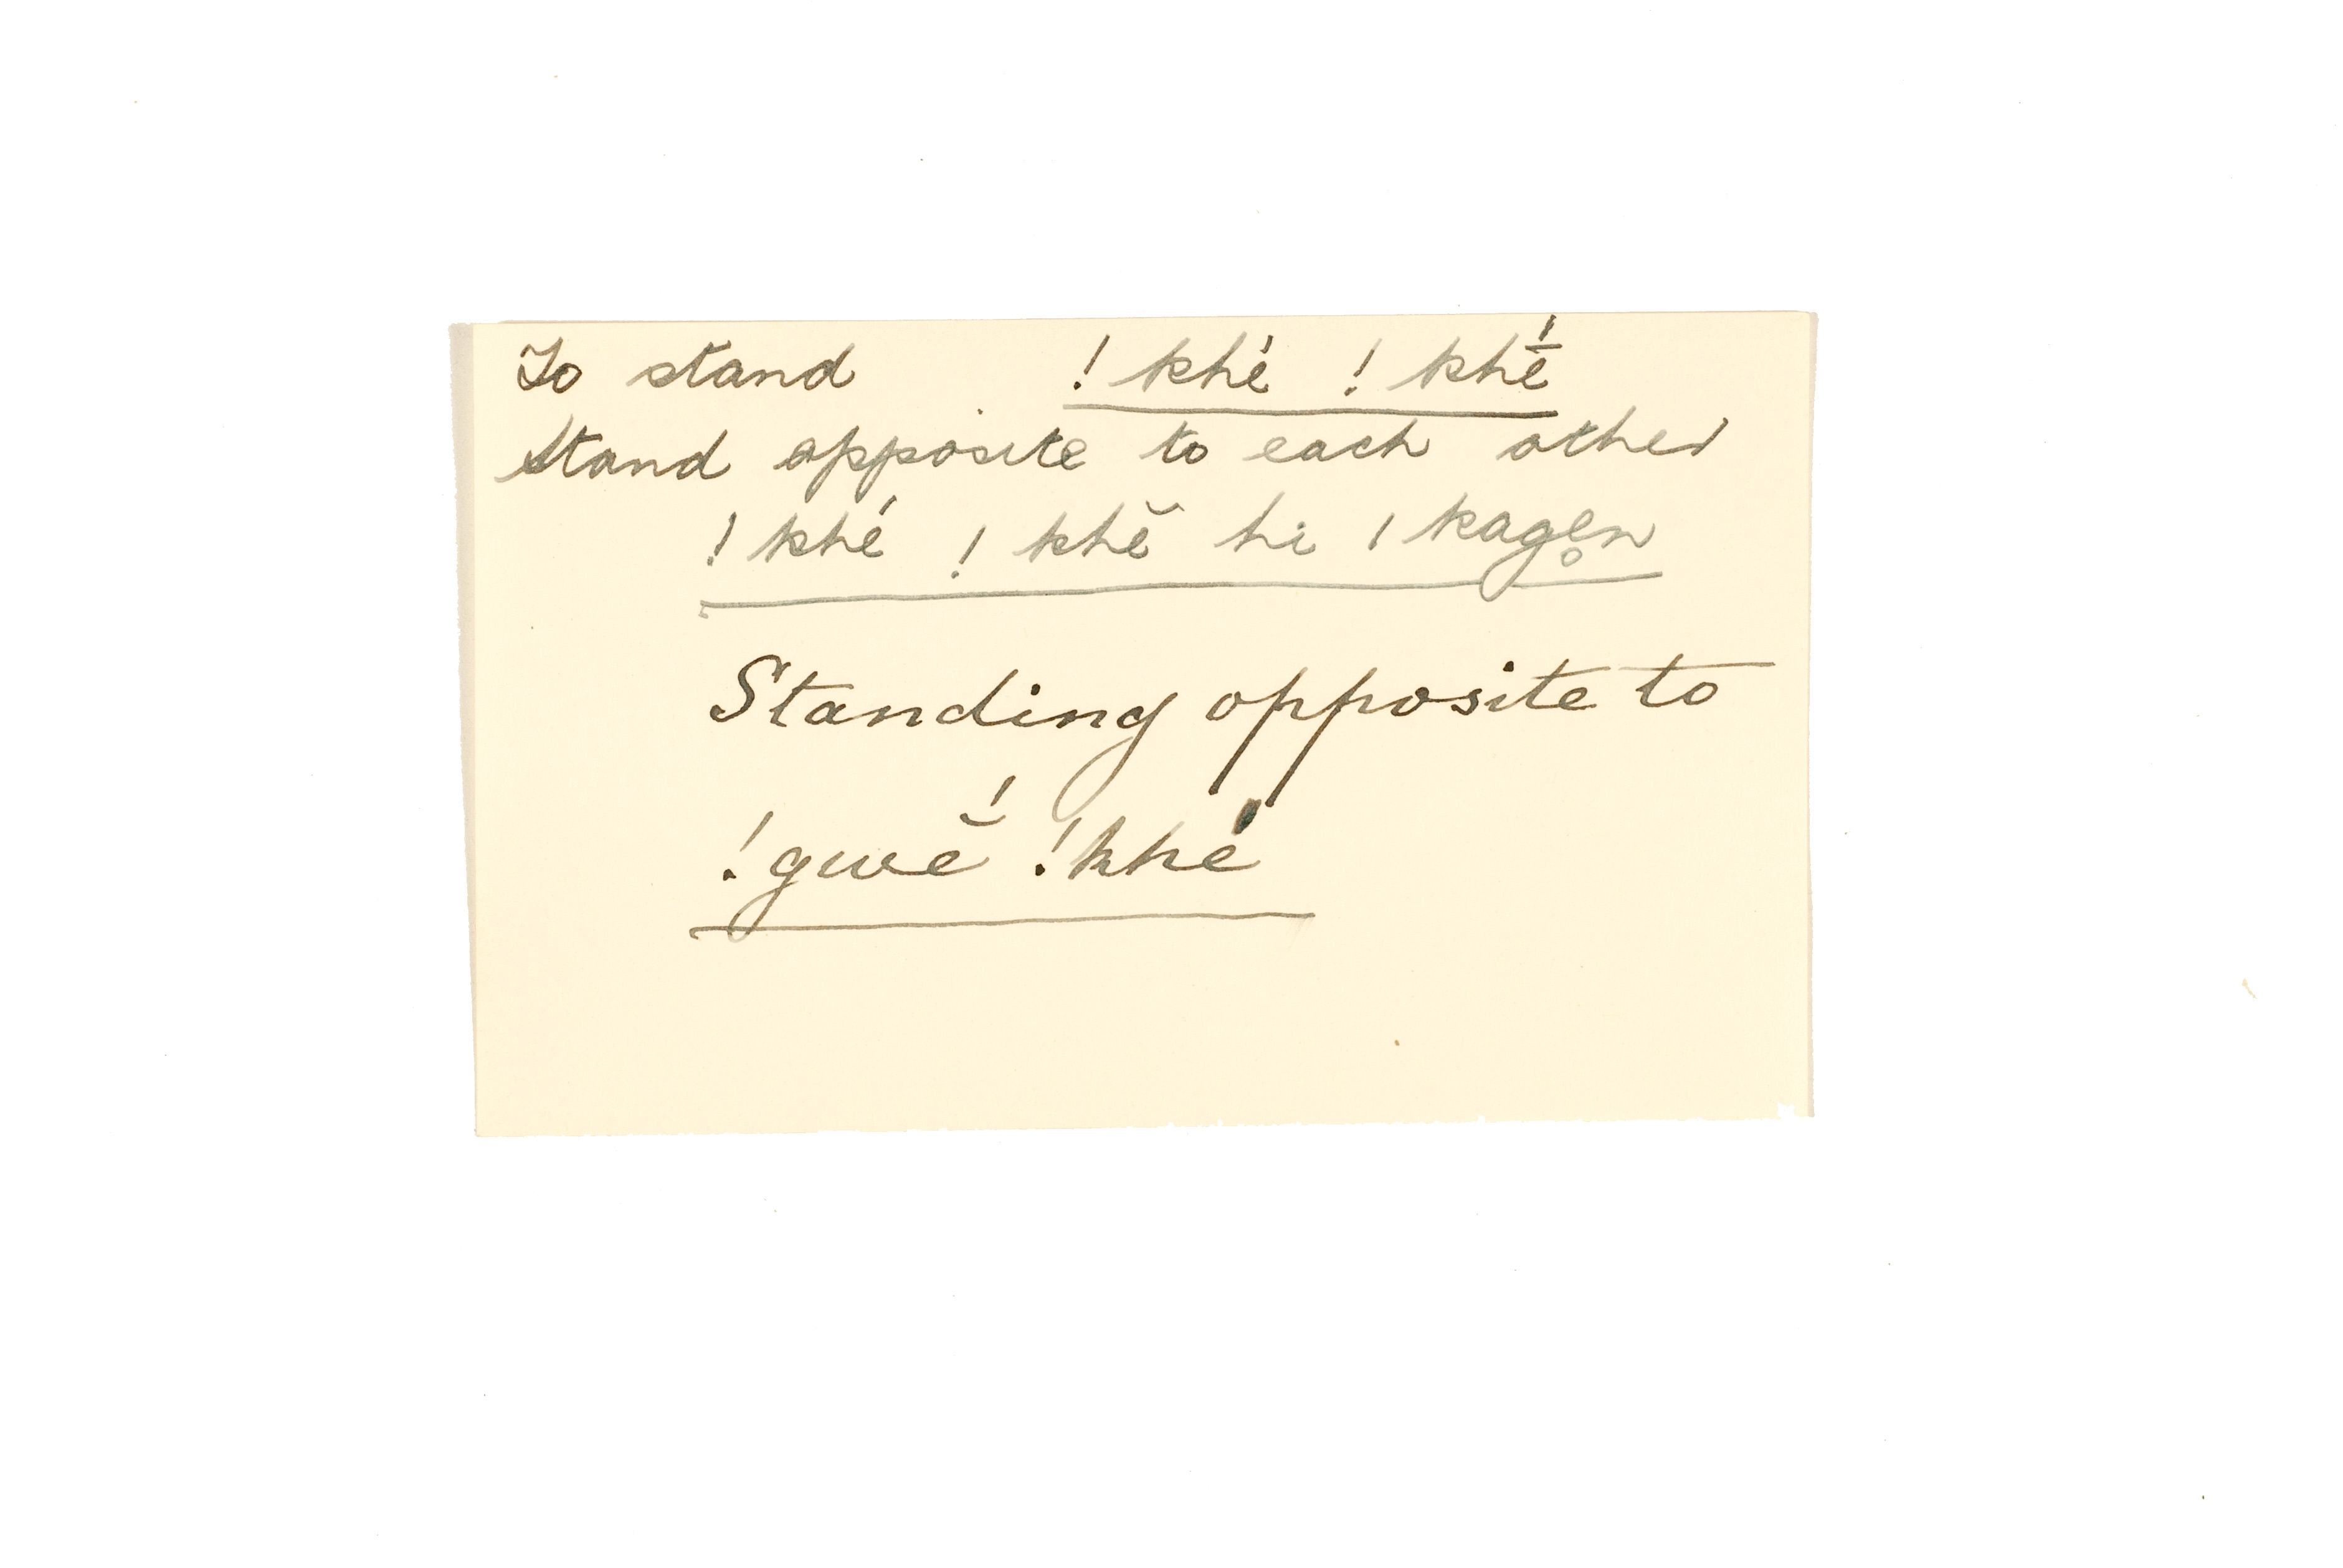 To stand !khé !khḗ
Stand opposite to each other
!khé !khĕ hi |kagen̥
Standing opposite to
!gwĕ́ !khé